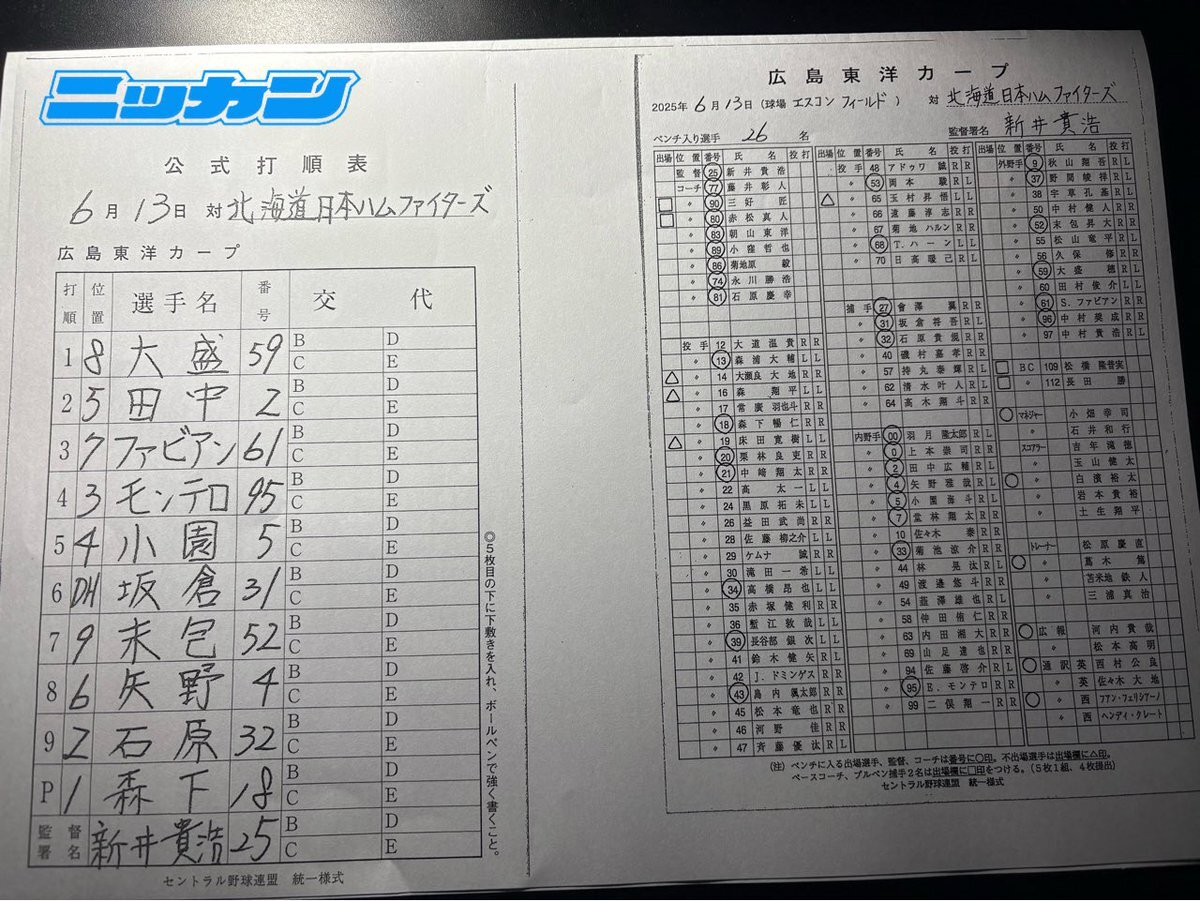 ニッカン
公式打順表
6月13日 対 北海道日本ハムファイターズ
広島東洋カープ
打順 位置 選手名 番号 交代
1 8 大盛 59 B D C E
2 5 田中 2 B D C E
3 7 ファビアン 61 B D C E
4 3 モンテロ 95 B D C E
5 4 小園 5 B D C E
6 DH 坂倉 31 B D C E
7 9 末包 52 B D C E
8 6 矢野 4 B D C E
9 2 石原 32 B D C E
P 1 森下 18 B D C E
監督署名 新井貴浩 25 B D C E
◎5枚目の下に下敷きを入れ、ボールペンで強く書くこと。
セントラル野球連盟 統一様式
広島東洋カープ
2025年 6月13日(球場 エスコンフィールド) 対 北海道日本ハムファイターズ
ベンチ入り選手 26名 監督署名 新井貴浩
出場 位置 番号 氏名 投 打
監督 25 新井貴浩
コーチ 77 藤井彰人
□ 〃 90 三好匠
□ 〃 80 赤松真人
〃 83 朝山東洋
〃 89 小窪哲也
〃 86 菊地原毅
〃 74 永川勝浩
〃 81 石原慶幸
投手 12 大道温貴 R R
〃 13 森浦大輔 L L
△ 〃 14 大瀬良大地 R R
△ 〃 16 森翔平 L L
〃 17 常廣羽也斗 R R
〃 18 森下暢仁 R R
△ 〃 19 床田寛樹 L L
〃 20 栗林良吏 R R
〃 21 中﨑翔太 R R
〃 22 高太一 L L
〃 24 黒原拓未 L L
〃 26 益田武尚 R R
〃 28 佐藤柳之介 L L
〃 29 ケムナ誠 R R
〃 30 滝田一希 L L
〃 34 高橋昂也 L L
〃 35 赤塚健利 R R
〃 36 蟹江敦哉 L L
〃 39 長谷部銀次 L L
〃 41 鈴木健矢 R L
〃 42 J.ドミンゲス R R
〃 43 島内颯太郎 R R
〃 45 松本竜也 R R
〃 46 河野佳 R R
〃 47 斉藤優汰 R L
出場 位置 番号 氏名 投 打
投手 48 アドゥワ誠 R R
〃 53 岡本駿 R L
△ 〃 65 玉村昇悟 L L
〃 66 遠藤淳志 R R
〃 67 菊地ハルン R R
〃 68 T.ハーン L L
〃 70 日高暖己 R L
捕手 27 會澤翼 R R
〃 31 坂倉将吾 R L
〃 32 石原貴規 R R
〃 40 磯村嘉孝 R R
〃 57 持丸泰輝 R L
〃 62 清水叶人 R L
〃 64 髙木翔斗 R R
内野手 00 羽月隆太郎 R L
〃 0 上本崇司 R R
〃 2 田中広輔 R L
〃 4 矢野雅哉 R L
〃 5 小園海斗 R L
〃 7 堂林翔太 R R
〃 10 佐々木泰 R R
〃 33 菊池涼介 R R
〃 44 林晃汰 R L
〃 49 渡邉悠斗 R R
〃 54 韮澤雄也 R L
〃 58 仲田侑仁 R R
〃 63 内田湘大 R R
〃 69 山足達也 R R
〃 94 佐藤啓介 R L
〃 95 E.モンテロ R R
〃 99 二俣翔一 R R
出場 位置 番号 氏名 投 打
外野手 9 秋山翔吾 R L
〃 37 野間峻祥 R L
〃 38 宇草孔基 R L
〃 50 中村健人 R R
〃 52 末包昇大 R R
〃 55 松山竜平 R L
〃 56 久保修 R R
〃 59 大盛穂 R L
〃 60 田村俊介 L L
〃 61 S.ファビアン R R
〃 96 中村奨成 R R
〃 97 中村貴浩 R L
□ BC 109 松橋隆普実
□ 〃 112 長田勝
○ マネジャー 小畑幸司
〃 石井和行
スコアラー 吉年滝徳
〃 玉山健太
○ 〃 白濱裕太
〃 岩本貴裕
〃 土生翔平
トレーナー 松原慶直
○ 〃 髙木篤
〃 苫米地鉄人
〃 三浦真治
○ 広報 河内貴哉
〃 松本高明
○ 通訳 英 西村公良
〃 英 佐々木大地
○ 〃 西 フアン・フェリシアーノ
〃 西 ヘンディ・クレート
(注) ベンチに入る出場選手、監督、コーチは番号に○印。不出場選手は出場欄に△印。
ベースコーチ、ブルペン捕手2名は出場欄に□印をつける。(5枚1組、4枚提出)
セントラル野球連盟 統一様式